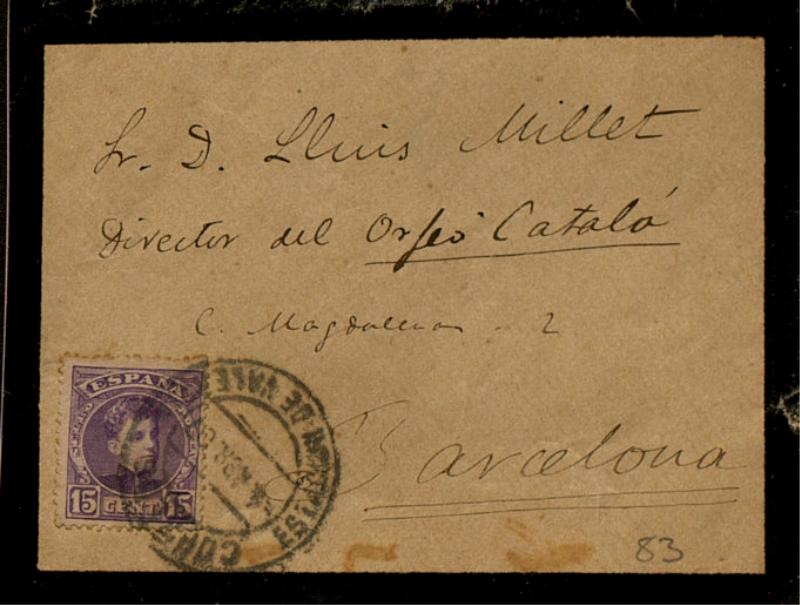 Sr. D. Lluis Millet
Director del Orfeó Catalá
C. Magdalenas - 2
Barcelona
ESPAÑA
15 CENT 15
DE VALE
83